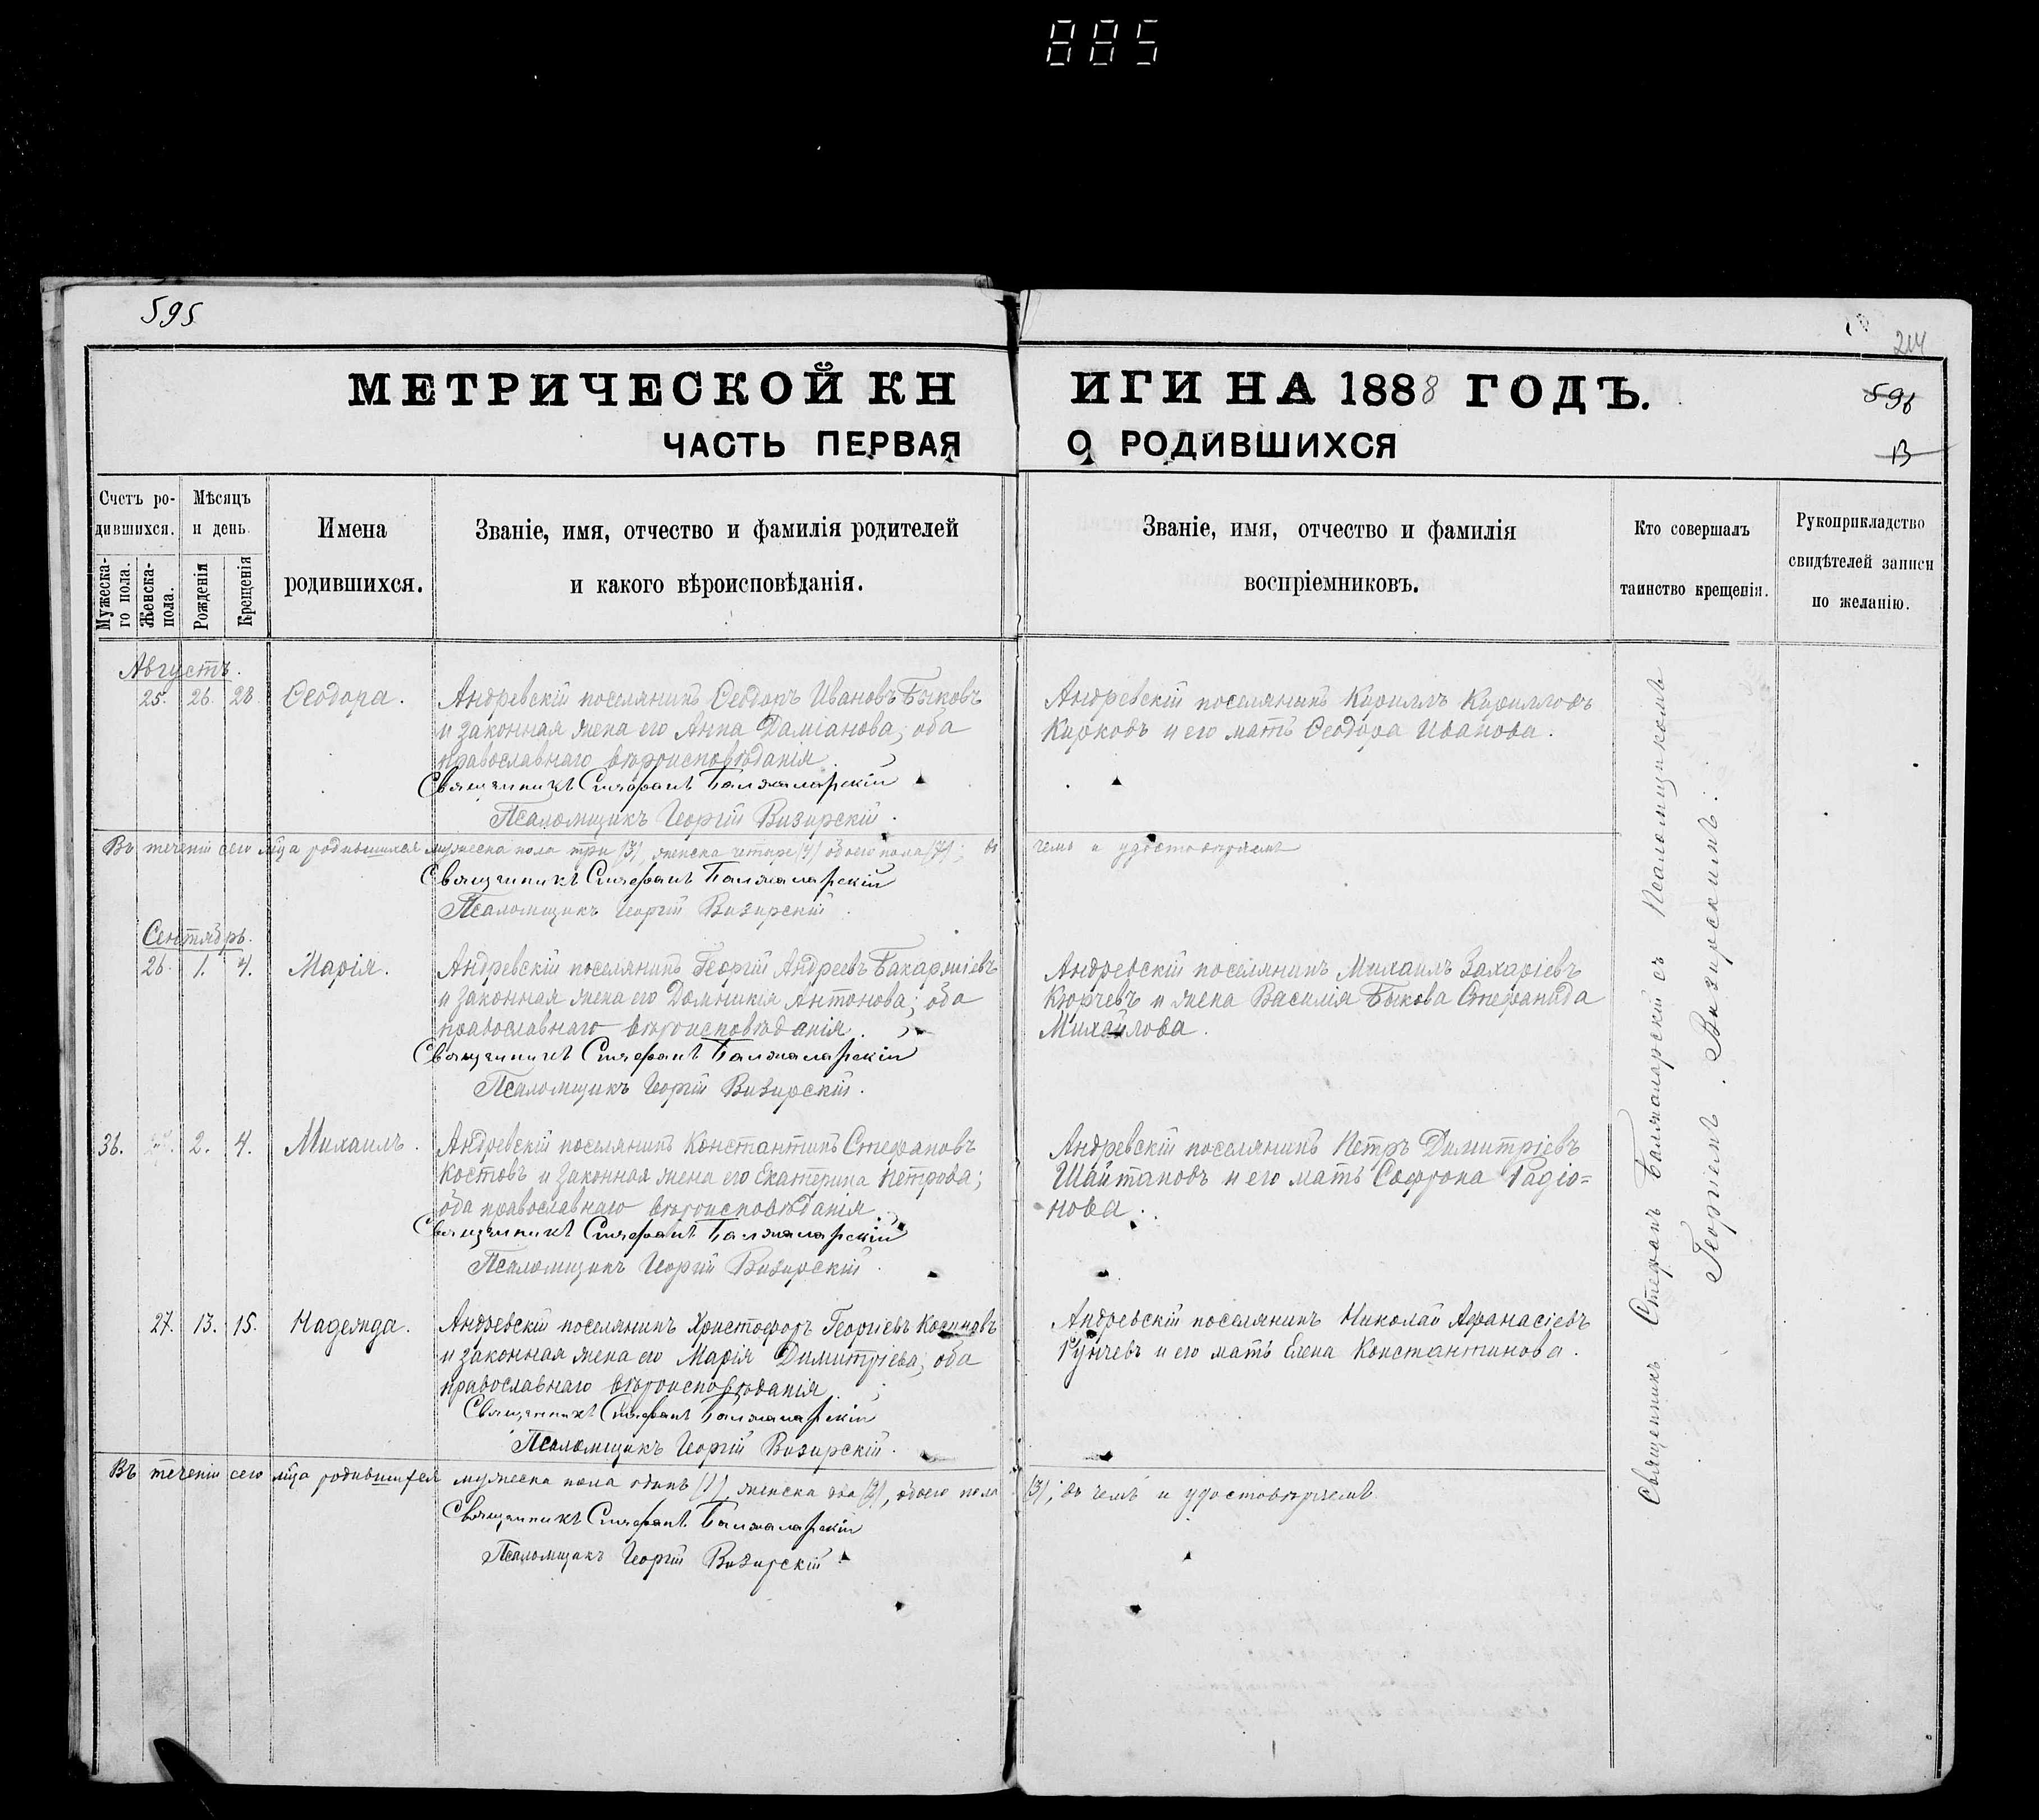 885
595
214
МЕТРИЧЕСКОЙ КНИГИ НА 1888 ГОДЪ.
596
13
ЧАСТЬ ПЕРВАЯ О РОДИВШИХСЯ
Счетъ родившихся.
Мужескаго пола.
Женска- пола.
Мѣсяцъ и день.
Рожденія
Крещенія
Имена родившихся.
Званіе, имя, отчество и фамилія родителей
и какого вѣроисповѣданія.
Званіе, имя, отчество и фамилія
воспріемниковъ.
Кто совершалъ
таинство крещенія.
Рукоприкладство
свидѣтелей записи
по желанію.
Августъ.
25. 26. 28. Ѳеодора.
Андревскій поселянинъ Ѳеодоръ Ивановъ Быковъ
и законная жена его Анна Даміанова; оба
православнаго вѣроисповѣданія.
Священникъ Стефанъ Балжаларскій
Псаломщикъ Георгій Визирскій.
Андревскій поселянинъ Кириллъ Кирилловъ
Кирковъ и его мать Ѳеодора Иванова.
Въ теченіи сего мѣца родившихся мужеска пола три (3), женска четыре (4) обоего пола (7); въ чемъ и удостовѣряемъ
Священникъ Стефанъ Балжаларскій
Псаломщикъ Георгій Визирскій.
Сентябрь.
26. 1. 4. Марія.
Андревскій поселянинъ Георгій Андреевъ
и законная жена его Домникія Антонова; оба
православнаго вѣроисповѣданія.
Священникъ Стефанъ Балжаларскій
Псаломщикъ Георгій Визирскій.
Андревскій поселянинъ Михаилъ Захаріевъ
Кюрчевъ и жена Василія Быкова Стефанида
Михайлова.
36. 2. 4. Михаилъ.
Андревскій поселянинъ Константинъ Стефановъ
Костовъ и законная жена его Екатерина Петрова;
оба православнаго вѣроисповѣданія
Священникъ Стефанъ Балжаларскій
Псаломщикъ Георгій Визирскій.
Андревскій поселянинъ Петръ Димитріевъ
Шайтановъ и его мать Софрона Радіо=
нова.
27. 13. 15. Надежда.
Андревскій поселянинъ Христофоръ Георгіевъ
и законная жена его Марія Димитріева; оба
православнаго вѣроисповѣданія.
Священникъ Стефанъ Балжаларскій
Псаломщикъ Георгій Визирскій.
Андревскій поселянинъ Николай Афанасіевъ
Гунчевъ и его мать Елена Константинова.
Въ теченіи сего мѣца родившихся мужеска пола одинъ (1), женска два (2), обоего пола (3); въ чемъ и удостовѣряемъ
Священникъ Стефанъ Балжаларскій
Псаломщикъ Георгій Визирскій.
Священникъ Стефанъ Балжаларскій съ Псаломщикомъ
Георгіемъ Визирскимъ.